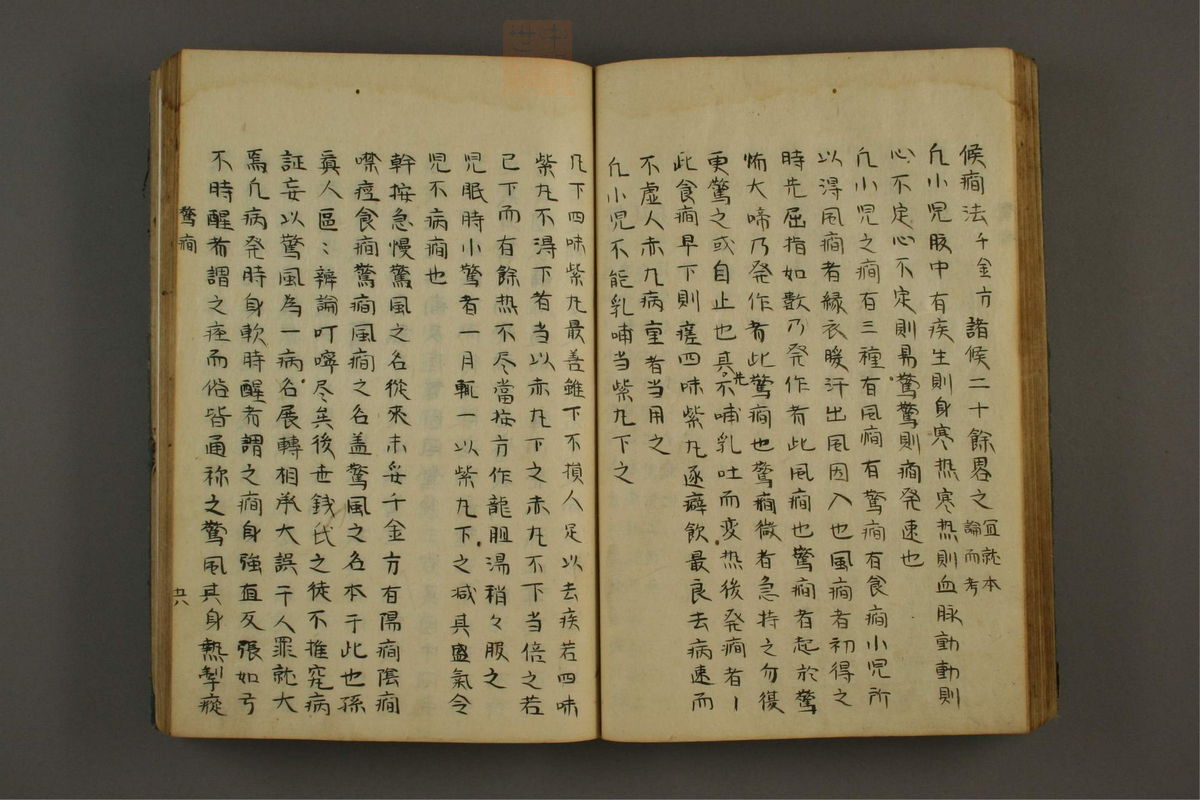 候癇法千金方 諸候二十餘畧之宜就本論而考
凢小児腹中有疾生則身寒热寒热則血脉動動則
心不定心不定則易驚驚則癇発速也
凢小児之癇有三種有風癇有驚癇有食癇小児所
以得風癇者縁衣暖汗出風因入也風癇者初得之
時先屈指如数乃発作者此風癇也驚癇者起於驚
怖大啼乃発作者此驚癇也驚癇微者急持之勿復
更驚之或自止也其先不哺乳吐而变热後発癇者ー
此食癇早下則瘥四味紫丸逐癖飲最良去病速而
不虚人赤丸病重者当用之
凢小児不能乳哺当紫丸下之
凢下四味紫丸最善雖下不損人足以去疾若四味
紫丸不得下者当以赤丸下之赤丸不下当倍之若
已下而有餘热不尽當按方作龍胆湯稍々服之
児眠時小驚者一月輒一以紫丸下之减其盛氣令
児不病癇也
幹按急慢驚風之名從来未妥千金方有陽癇陰癇
噤痙食癇驚癇風癇之名盖驚風之名本于此也孫
真人區〻辨論叮嚀尽矣後世銭氏之徒不推究病
証妄以驚風為一病名展轉相承大誤于人罪就大
焉凢病発時身軟時醒者謂之癇身強直反張如弓
不時醒者謂之痙而俗皆通称之驚風其身熱掣瘲
驚癇
共